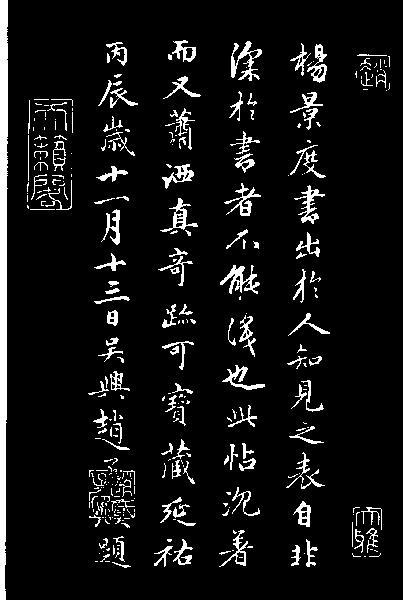 楊景度書出於人知見之表自非
深於書者不能識也此帖沉著
而又蕭洒真奇跡可寶藏延祐
丙辰歲十一月十三日吳興趙孟頫題
大雅